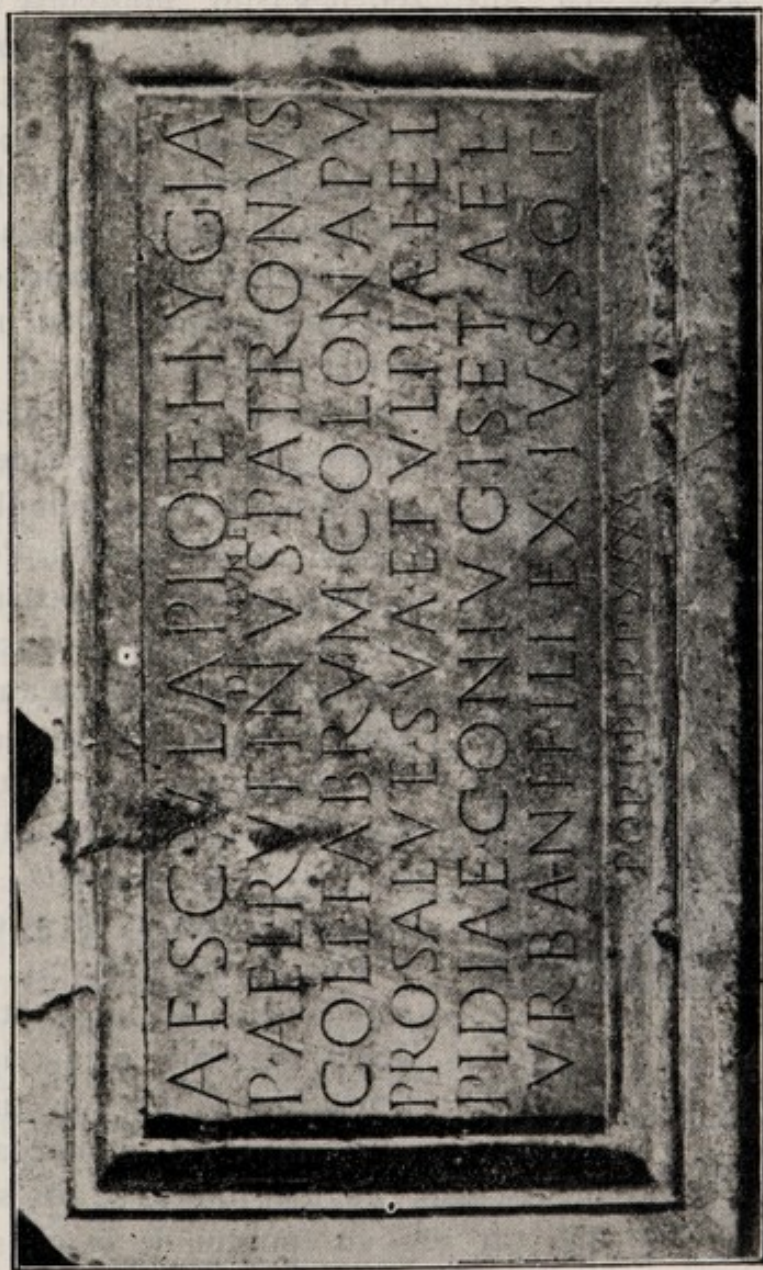 AESCVLAPIO E HYGIA
P AEL RVFINVS PATRONVS
COLL FABRVM COLON APV
PRO SALVTE SVA ET VLPIAE EL
PIDIAE CONIVGIS ET AEL
VRBANI FILI EX IVSSO F
PORT PER P XXXX